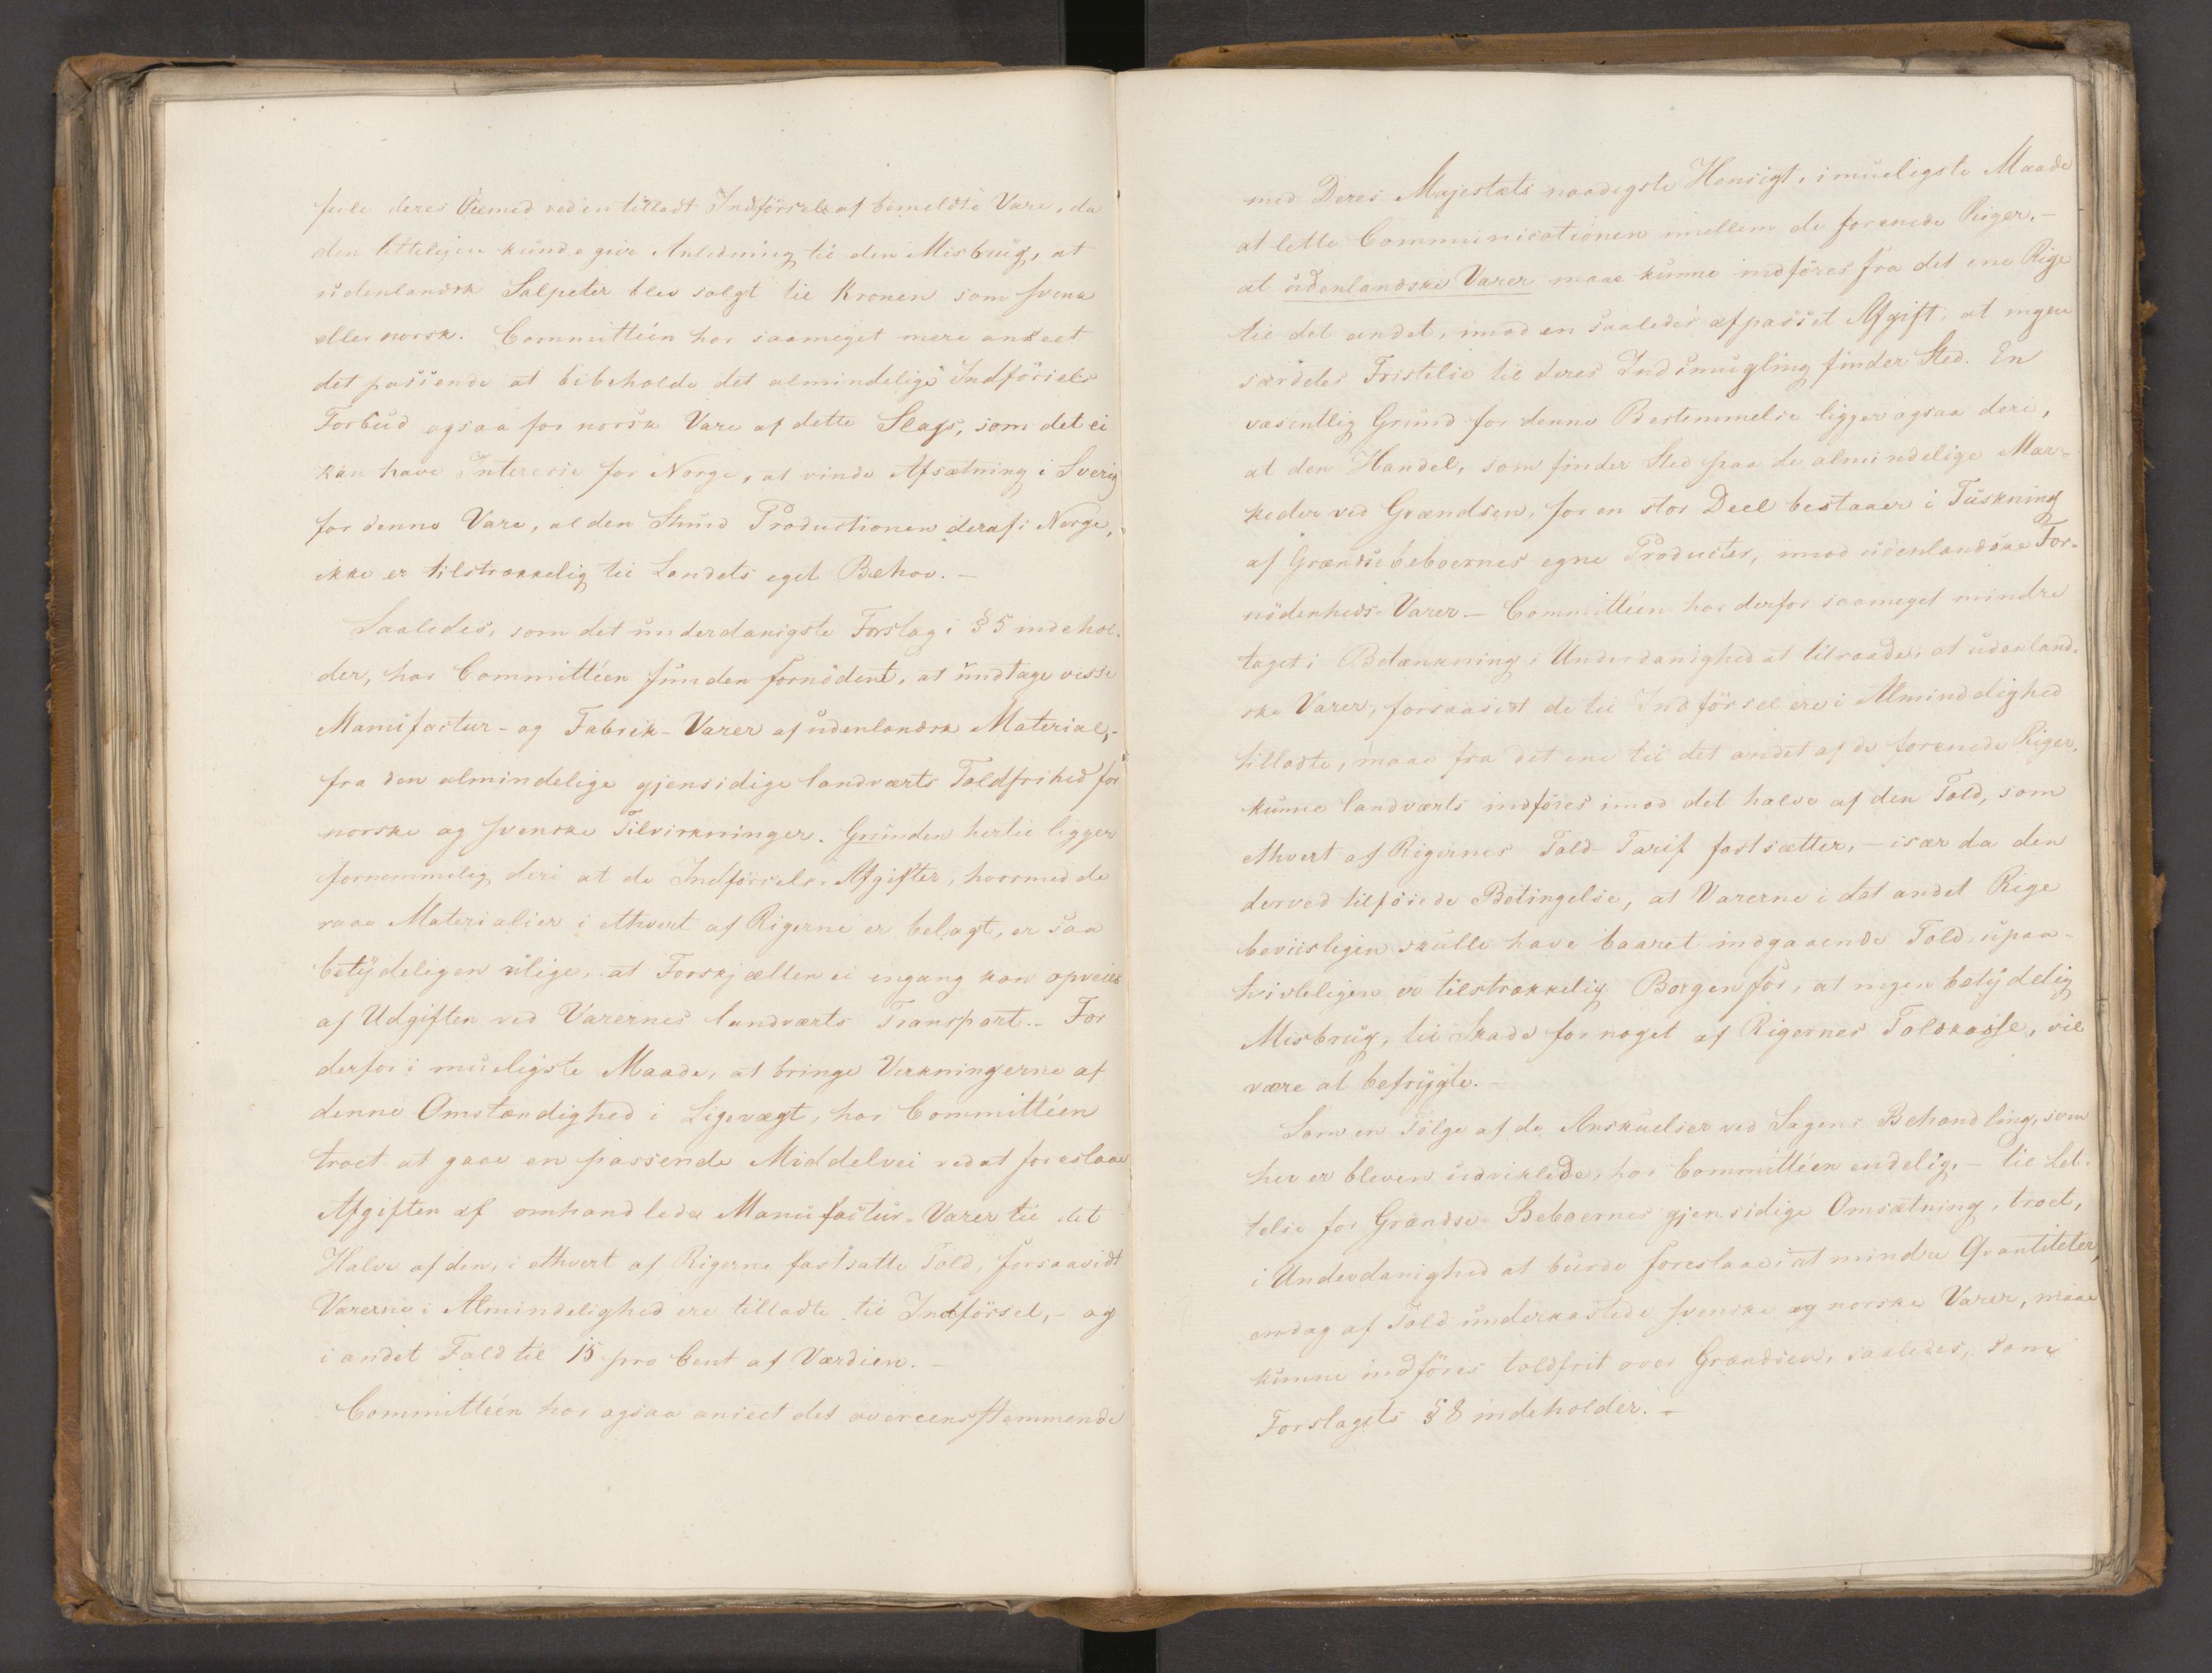 feile deres Öiemed ved en tilladt Indförsels af bemeldte Vare, da
den letteligen kunde give Anledning til den Misbrug, at
udenlandsk Salpeter blev solgt til Kronen som svensk
eller norsk. Committéen har saameget mere anseet
det passende at bibeholde det almindelige Indförsels
Forbud ogsaa for norsk Vare af dette Slags, som det ei
kan have Interesse for Norge, at vinde Afsætning i Sverig
for denne Vare, al den Stund Productionen deraf i Norge,
ikke er tilstrækkelig til Landets eget Behov. –
Saaledes, som det underdanigste Forslag i § 5 indehol-
der, har Committéen funden fornödent, at undtage visse
Manufactur- og Fabrik-Varer af udenlandsk Material,-
fra den almindelige gjensidige landværts Toldfrihed for
norske og svenske Tilvirkninger. Grunden hertil ligger
fornemmelig deri at de Indförsels-Afgifter, hvormed de
raae Materialier i ethvert af Rigerne er belagt, er saa
betydeligen ulige, at Forskjællen ei engang kan opveies
af Udgiften ved Varernes landværts Transport. – For
derfor i mueligste Maade, at bringe Virkningerne af
denne Omstændighed i Ligevægt, har Committéen
troet at gaae en passende Middelvei ved at foreslaae
Afgiften af omhandlede Manufactur-Varer til det
Halve af den, i ethvert af Rigerne fastsatte Told, forsaavidt
Varerne i Almindelighed ere tilladte til Indförsel, – og
i andet Fald til 15 pro Cent af Værdien. –
Committéen har ogsaa anseet det overeensstemmende
med Deres Majestæts naadigste Hensigt, i mueligste Maade
at lette Communicationen imellem de forenede Riger. –
at udenlandske Varer maae kunne indföres fra det ene Rige
til det andet, imod en saaledes afpasset Afgift, at ingen
særdeles Fristelse til deres Indsmugling finder Sted. En
væsentlig Grund for denne Bestemmelse ligger ogsaa deri,
at den Handel, som finder Sted paa de almindelige Mar-
keder ved Grændsen, for en stor Deel bestaaer i Tuskning
af Grændsebeboernes egne Producter, imod udenlandske For-
nödenheds-Varer – Committéen har derfor saameget mindre
taget i Betænkning i Underdanighed at tilraade, at udenland-
ske Varer, forsaavidt de til Indförsel ere i Almindelighed
tilladte, maae fra det ene til det andet af de forenede Riger,
kunne landværts indföres imod det halve af den Told, som
ethvert af Rigernes Told-Tarif fastsætter, – især da den
derved tilföiede Betingelse, at Varerne i det andet Rige
beviisligen skulle have baaret indgaaende Told, upaa-
tvivleligen er tilstrækkelig Borgen for, at ingen betydelig
Misbrug, til Skade for noget af Rigernes Toldkasse, vil
være at befrygte. –
Som en Fölge af de Anskuelser ved Sagens Behandling, som
her er bleven udviklede, har Committéen endelig, – til Let-
telse for Grændse-Beboernes gjensidige Omsætning, troet,
i Underdanighed at burde foreslaae at mindre Qvantiteter,
endog af Told underkastede svenske og norske Varer, maae
kunne indföres toldfrit over Grændsen, saaledes, som
Forslagets § 8 indeholder. –